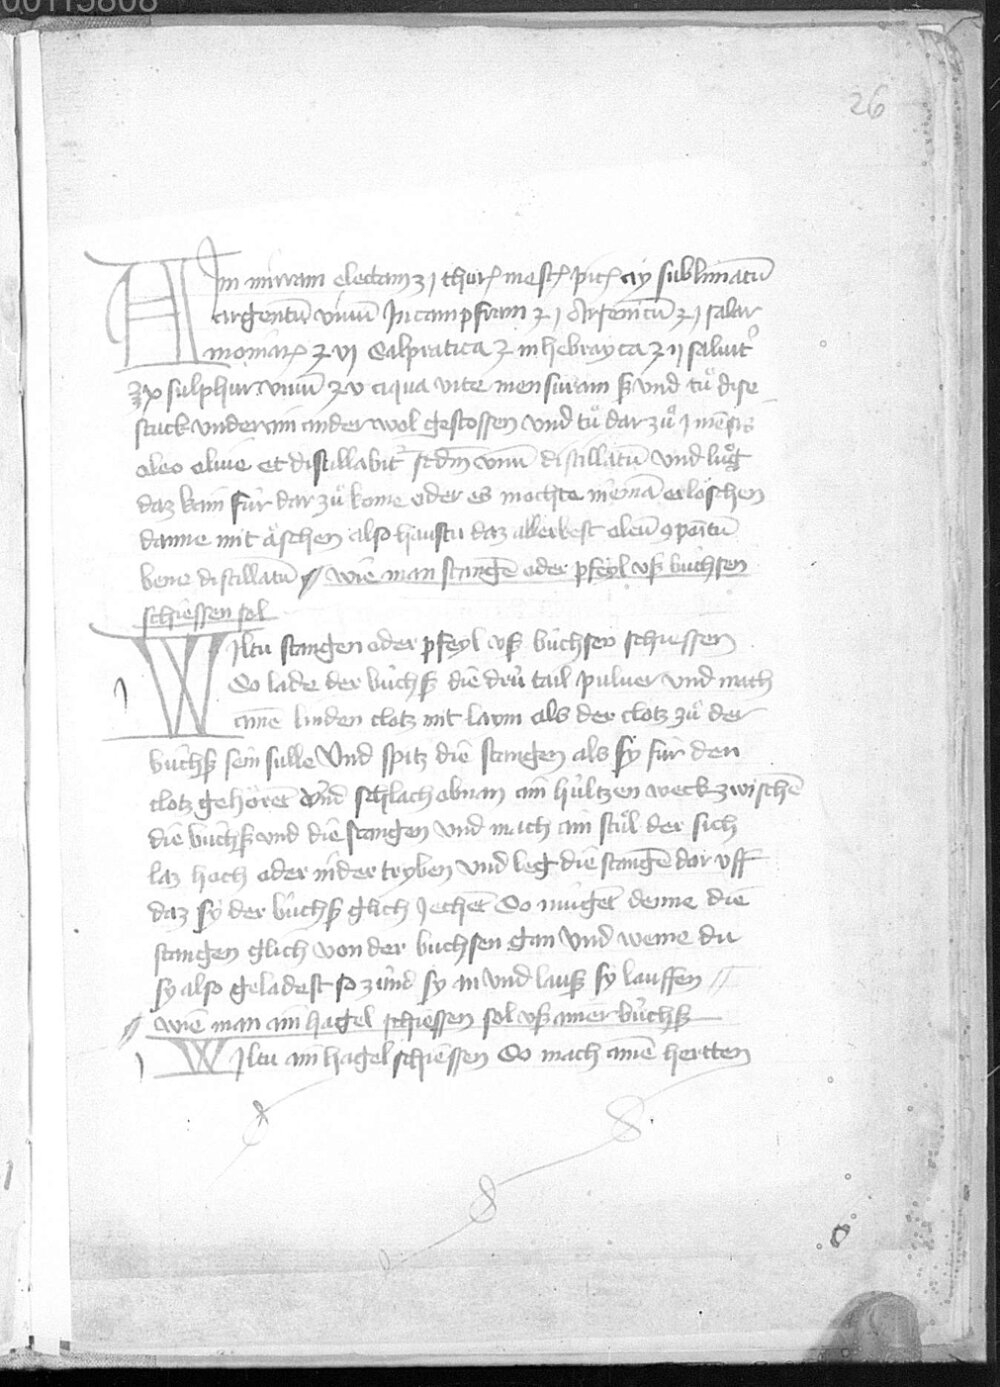 00113808
26
Nim mirram electam ʒ j thur mast pic aʒ sublimatū
argentū vivū Jn campfram ʒ j Arsenicū ʒ j salar
moniaꝝ ʒ vj Salpratica ʒ in hebrayca ʒ ij salvit
ʒ x sulphur vivū ʒ v aqua vite mensuram ß und tů dise
stuck under ain ander wol gestossen und tů dar zů j mēsis
oleo olive et distillabit scdm vinū distillatū und lůg
daz kain für dar zů kome oder es mochte niemā erlöschen
danne mit äschen also haustu daz allerbest oleū ꝯpositū
bene distillatū // wie man stangē oder pfeyl uß büchsen
schiessen sol
Wiltu stangen oder pfeyl uß büchsen schiessen
So lade der büchß die drü tail pulver und mach
ainē linden clotz mit laym als der clotz zů der
büchß sein sulle Und spitz die stangen als sy für den
clotz gehöret und schlach obnan ain hültzen weck zwischē
die büchß und die stangen und mach ain stůl der sich
laz hoch oder nider tryben und leg die stangē dar uff
daz sy der büchß glich Jechet So müget denne die
stangen glich von der buchsen gan Und wenne du
sy also geladest so zünd sy an und lauß sy lauffen //
// wie man ain hagel schiessen sol uß ainer büchß
Wiltu ain hagel schiessen So mach ainē hertten